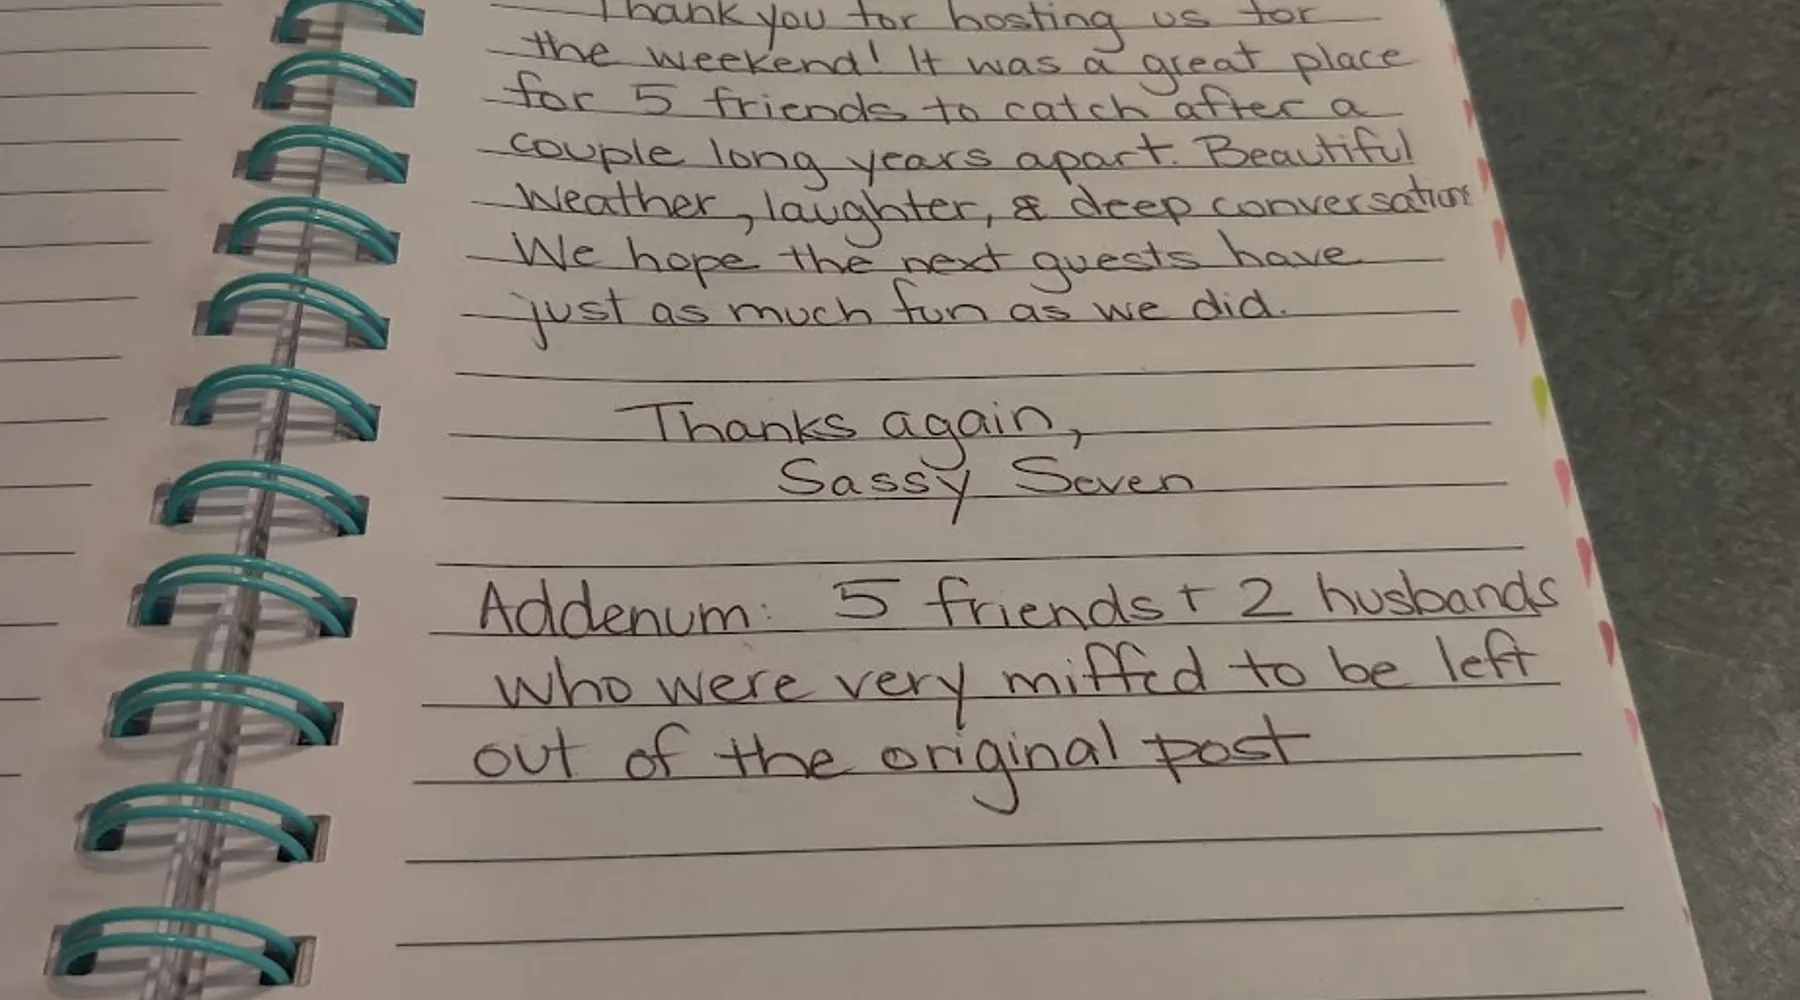 Thank you for hosting us for
the weekend! It was a great place
for 5 friends to catch after a
couple long years apart. Beautiful
weather, laughter, & deep conversations
We hope the next guests have
just as much fun as we did.
Thanks again,
Sassy Seven
Addenum: 5 friends + 2 husbands
who were very miffed to be left
out of the original post